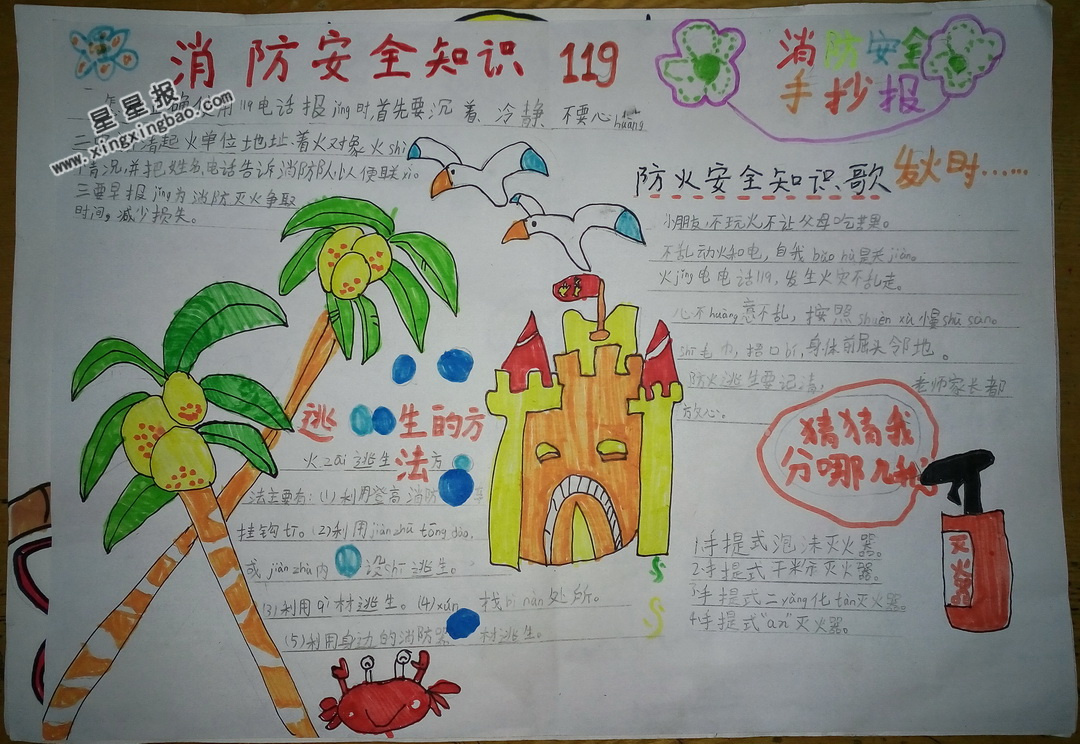 消防安全知识 119
消防安全
手抄报
星星报
www.xingxingbao.com
使用119电话报jǐng时,首先要沉着、冷静 不要心huāng
二 清起火单位地址、着火对象、火shì
情况,并把姓名、电话告诉消防队,以便联xì。
三要早报jǐng为消防灭火争取
时间,减少损失。
防火安全知识歌
发火时……
小朋友,不玩火不让父母吃苦果。
不乱动火和电,自我bǎo hù是关jiàn。
火jǐng电电话119,发生火灾不乱走。
心不huāng意不乱,按照shuèn xù慢shū sàn。
shī毛巾,捂口bí,身体前屈头邻地。
防火逃生要记清, 老师家长都
放心。
逃 生的方
法
火zāi逃生 方
法主要有:(1)利用登高消防
挂钩 。(2)利用jiàn zhù tōng dào,
或jiàn zhù内 设shī逃生。
(3)利用 材逃生。(4)xún 找bì nàn处所。
(5)利用身边的消防器 材逃生。
猜猜我
分哪几种
1.手提式泡沫灭火器。
2.手提式干粉灭火器。
3.手提式二yǎng化tàn灭火器。
4.手提式 灭火器。
灭火器